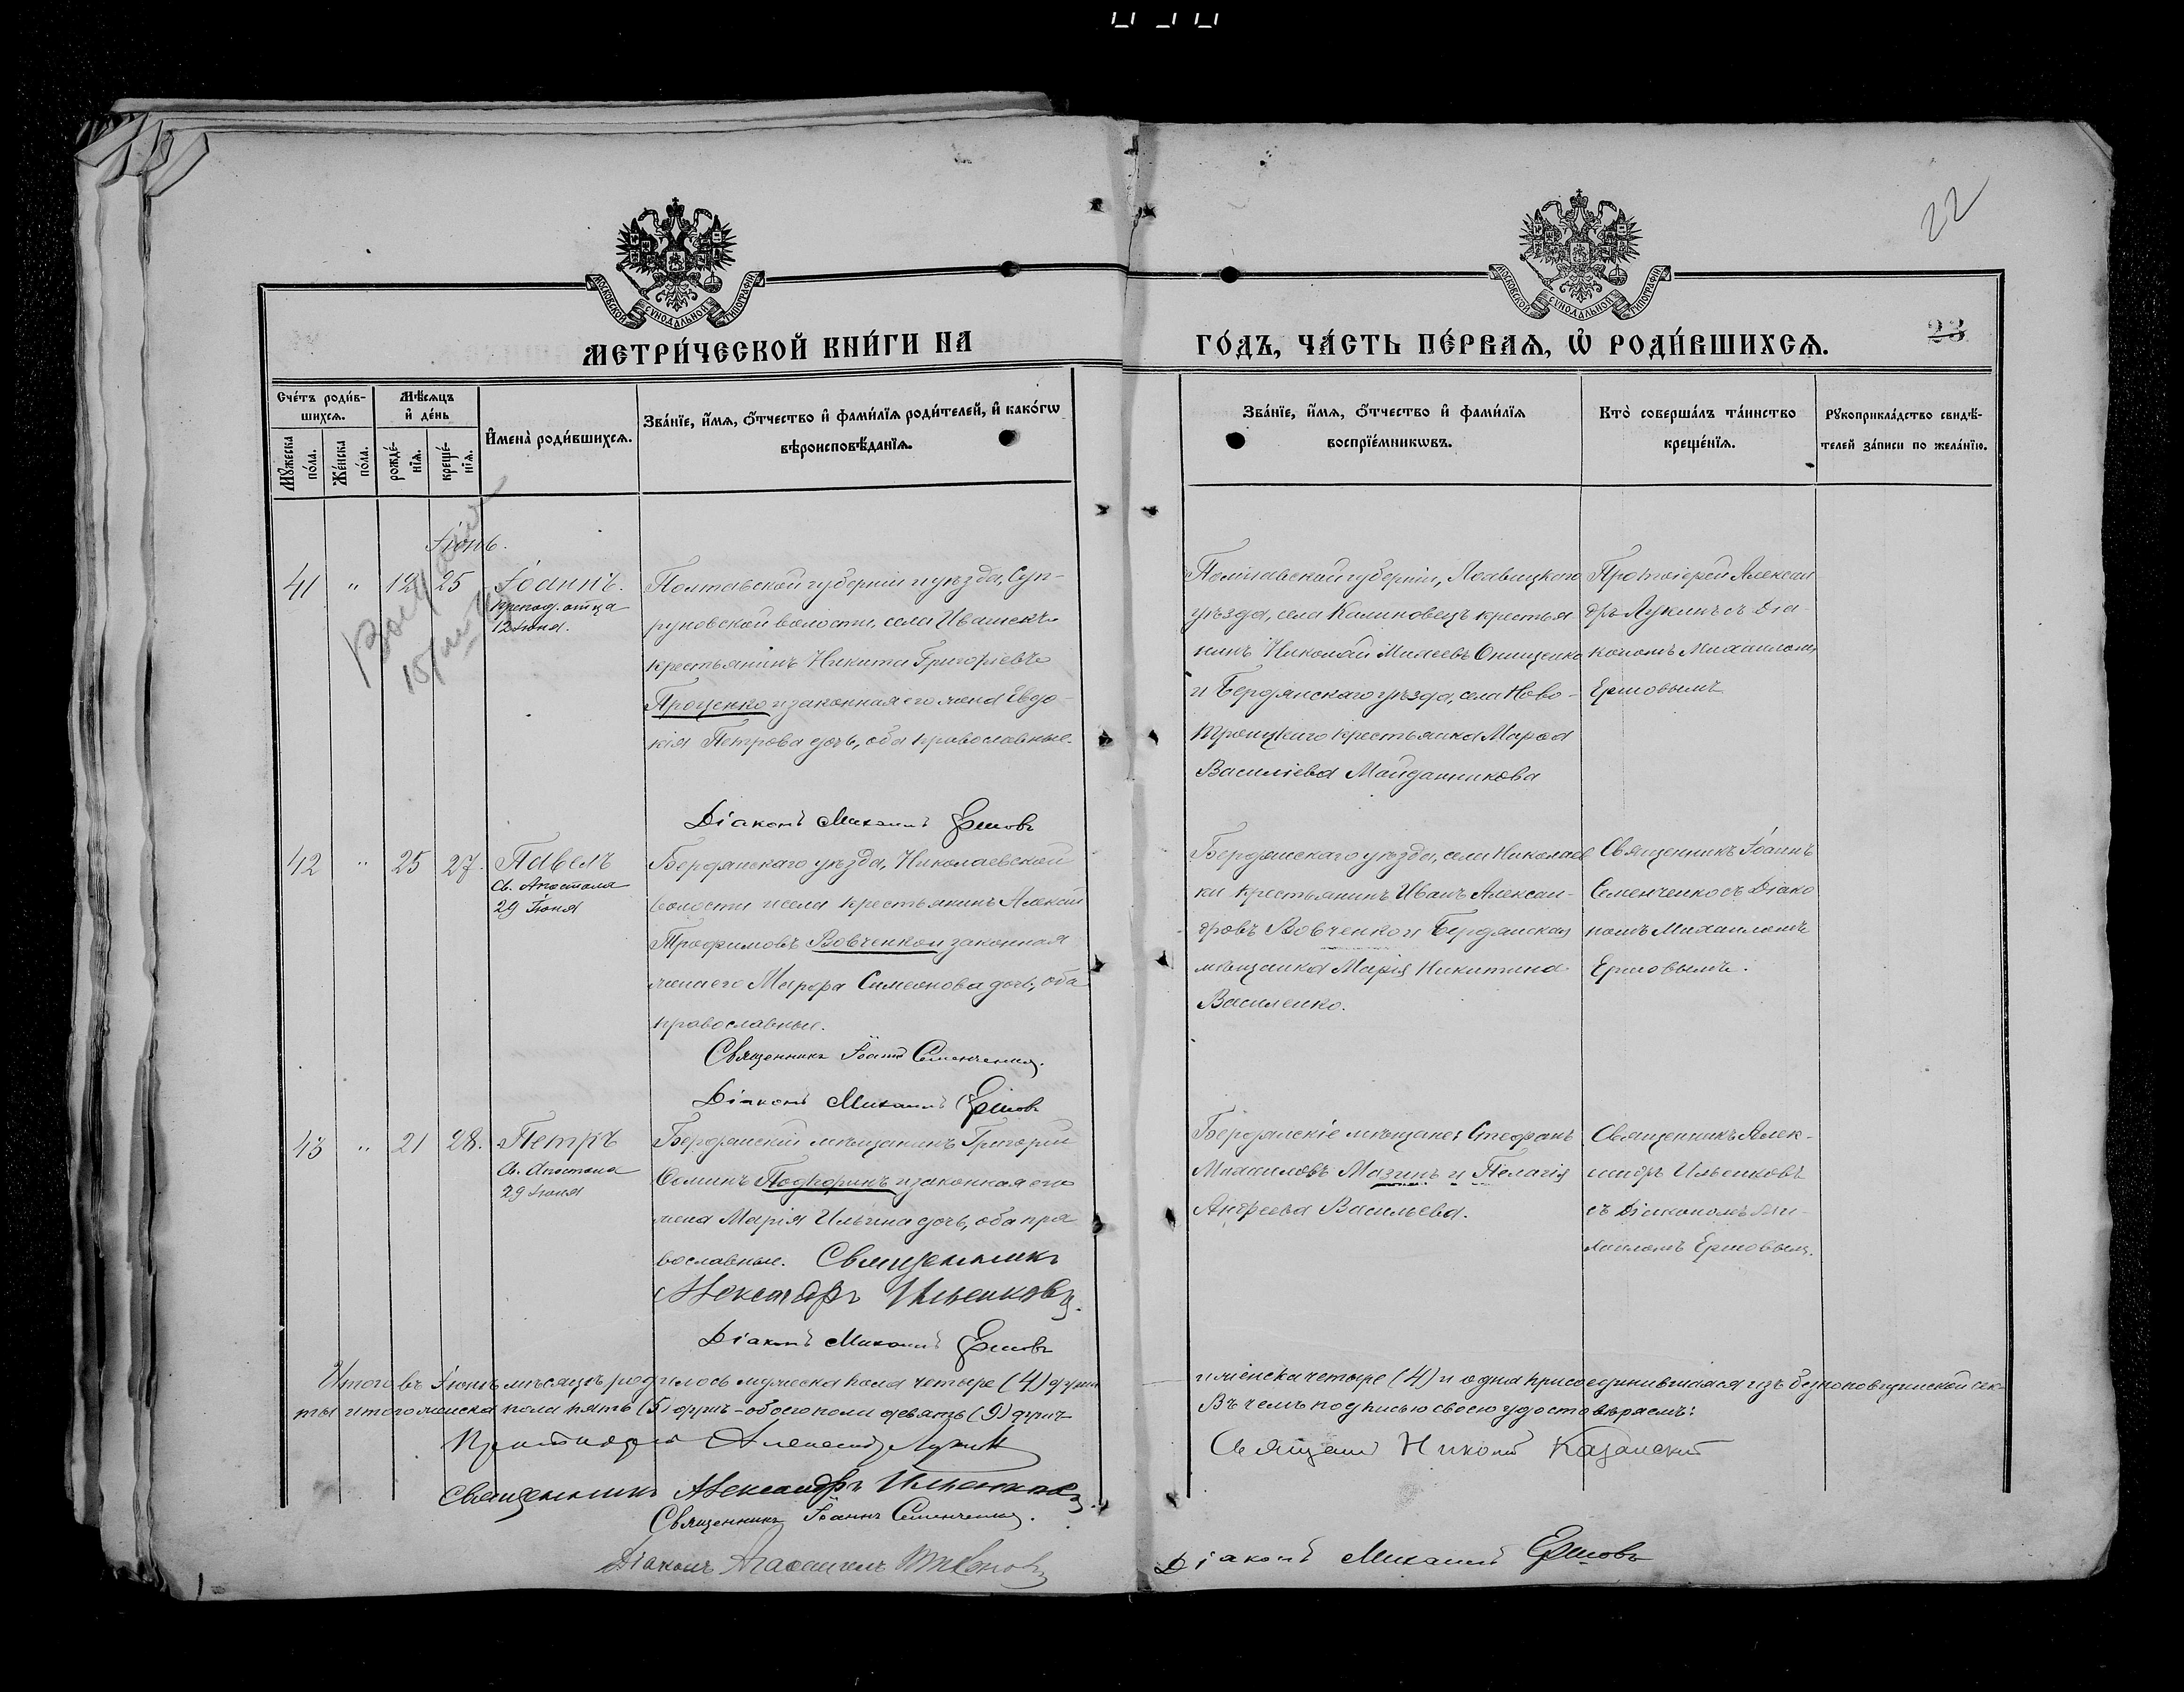 22
МОСКОВСКОЙ СУНОДАЛЬНОЙ ТИПОГРАФІИ
МОСКОВСКОЙ СУНОДАЛЬНОЙ ТИПОГРАФІИ
МЕТРИ́ЧЕСКОЙ КНИ́ГИ НА
ГО́ДЪ, ЧА́СТЬ ПЕ́РВАѦ, Ѡ҆ РОДИ́ВШИХСѦ.
23
Сче́тъ роди́в-
шихсѧ.
Мꙋ́жеска по́ла.
Же́нска по́ла.
Мѣ́сѧцъ
и҆ де́нь
рожде́-
нїѧ.
креще́-
нїѧ.
И҆мена̀ роди́вшихсѧ.
Зва́нїе, и҆́мѧ, ѻ҆́тчество и҆ фами́лїѧ роди́телей, и҆ како́гѡ
вѣроисповѣ́данїѧ.
Зва́нїе, и҆́мѧ, ѻ҆́тчество и҆ фами́лїѧ
воспрїе́мникѡвъ.
Кто̀ соверша́лъ та́инство
креще́нїѧ.
Рꙋкоприкла́дство свидѣ́-
телей за́писи по жела́нїю.
Іюнь.
41 " 12 25
Іоаннъ.
препод. отца
12 Іюня.
Полтавской губерніи и уѣзда, Суп-
руновской волости, села Ивашекъ
крестьянинъ Никита Григоріевъ
Проценко и законная его жена Евдо-
кія Петрова дочь, оба православные.
Діаконъ Михаилъ Ершовъ
Полтавской губерніи,
уѣзда, села Калиновецъ крестья
нинъ Николай Онищенко
и Бердянскаго уѣзда, села Ново-
троицкаго крестьянка
Василіева Майданникова
Протоіерей Алексан
дръ Лукинъ съ Діа-
кономъ Михаиломъ
Ершовымъ
42 " 25 27.
Павелъ
Св. Апостола
29 Іюня
Бердянскаго уѣзда, Николаевской
волости и села крестьянинъ Алексій
Трофимовъ Вовченко и законная
жена его Марфа Симеонова дочь, оба
православные.
Священникъ Іоаннъ Семенченко.
Діаконъ Михаилъ Ершовъ
Бердянскаго уѣзда, села Николаев
ки крестьянинъ Иванъ Алексан-
дровъ Вовченко и Бердянская
мѣщанка Марія Никитина
Василенко.
Священникъ Іоаннъ
Семенченко съ Діако
номъ Михаиломъ
Ершовымъ.
43 " 21 28.
Петръ
Св. Апостола
29 Іюня
Бердянскій мѣщанинъ Григорій
Ѳоминъ и законная его
жена Марія Ильина дочь, оба пра
вославные. Священникъ
Александръ Ильенковъ.
Діаконъ Михаилъ Ершовъ
Бердянскіе мѣщане: Стефанъ
Михаиловъ Мазинъ и Пелагія
Андреева Васильева.
Священникъ Алек-
сандръ Ильенковъ
съ Діакономъ Ми-
хаиломъ Ершовымъ.
Итого въ Іюнѣ мѣсяцѣ родилось мужеска пола четыре (4) души
и женска четыре (4) и одна присоединившаяся изъ безпоповщинской сек-
ты итого женска пола пять (5) душъ - обоего пола девять (9) душъ
Въ чемъ подписью своею удостовѣряемъ:
Протоіерей Александръ Лукинъ
Священникъ Александръ Ильенковъ
Священникъ Іоаннъ Семенченко.
Діаконъ
Казанскій
Діаконъ Михаилъ Ершовъ